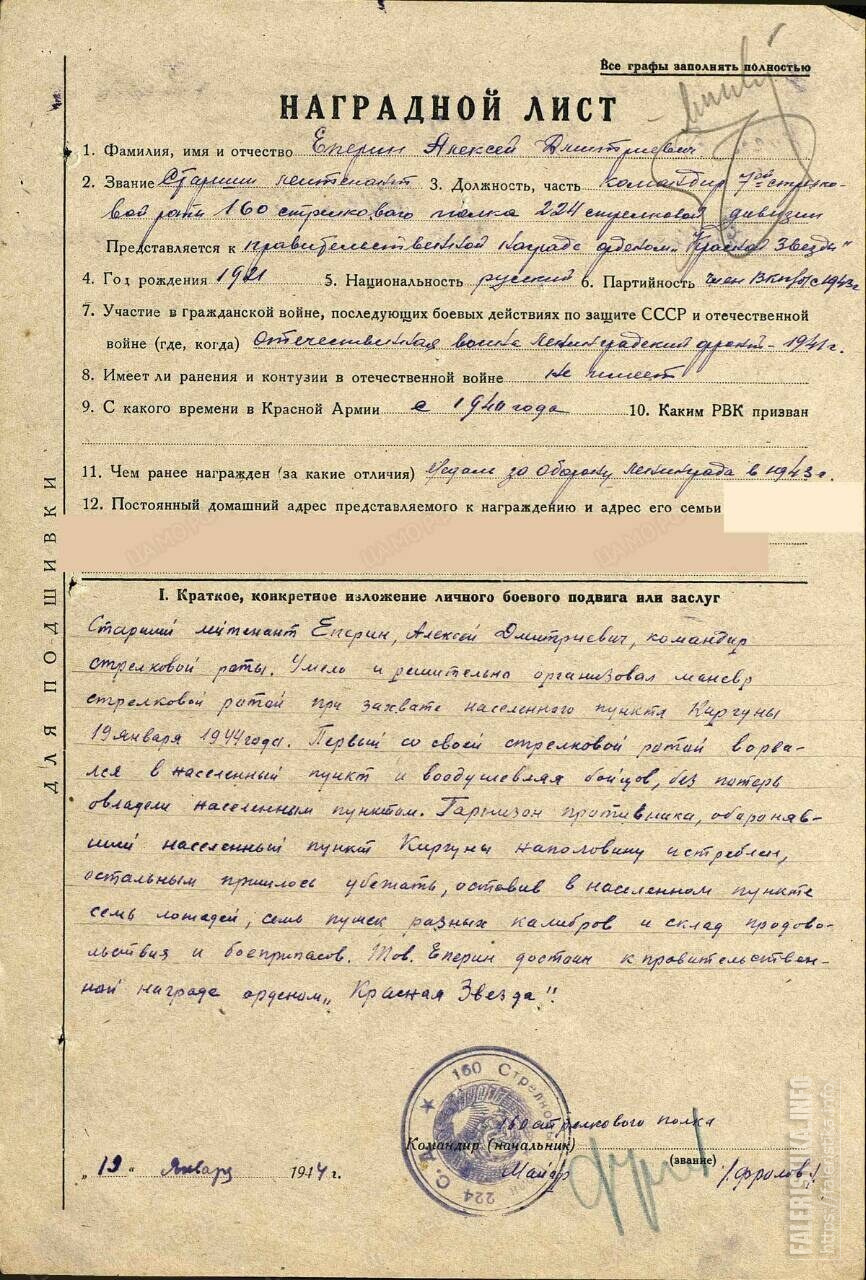 Все графы заполнять полностью
НАГРАДНОЙ ЛИСТ
1. Фамилия, имя и отчество Еперин Алексей Дмитриевич
2. Звание Старший лейтенант 3. Должность, часть командир 7ой стрелко-
вой роты 160 стрелкового полка 224 стрелковой дивизии
Представляется к правительственной награде орденом „Красная Звезда"
4. Год рождения 1921 5. Национальность русский 6. Партийность член ВКП(б) с 1943г
7. Участие в гражданской войне, последующих боевых действиях по защите СССР и отечественной
войне (где, когда) Отечественная война Ленинградский фронт - 1941г.
8. Имеет ли ранения и контузии в отечественной войне не имеет
9. С какого времени в Красной Армии с 1940 года 10. Каким РВК призван
11. Чем ранее награжден (за какие отличия) медаль за Оборону Ленинграда в 1943г.
12. Постоянный домашний адрес представляемого к награждению и адрес его семьи
ДЛЯ ПОДШИВКИ
I. Краткое, конкретное изложение личного боевого подвига или заслуг
Старший лейтенант Еперин, Алексей Дмитриевич, командир
стрелковой роты. Умело и решительно организовал маневр
стрелковой ротой при захвате населенного пункта Киргуны
19 января 1944 года. Первый со своей стрелковой ротой ворва-
лся в населенный пункт и воодушевляя бойцов, без потерь
овладели населенным пунктом. Гарнизон противника, обороняв-
ший населенный пункт Киргуны наполовину истреблен,
остальным пришлось убежать, оставив в населенном пункте
семь лошадей, семь пушек разных калибров и склад продово-
льствия и боеприпасов. Тов. Еперин достоин к правительствен-
ной награде орденом „Красная Звезда".
160 Стрелков
224 С.Д.
160 стрелкового полка
Командир (начальник)
Майор (звание) /Фролов/
„19" Января 1944 г.
FALERISTIKA.INFO